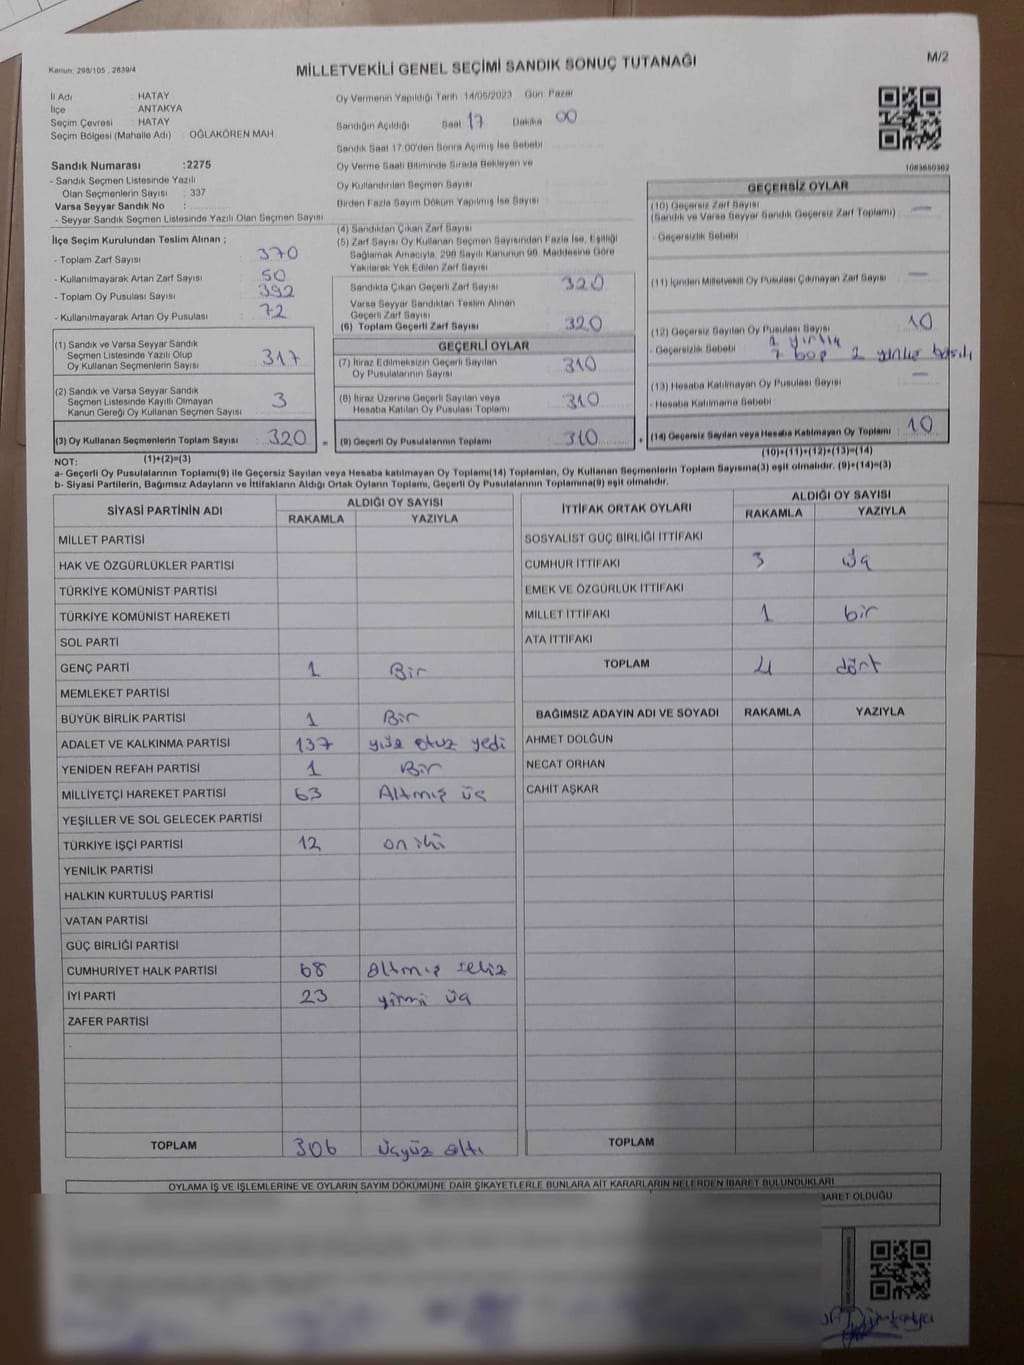 Kanun: 298/105 , 2839/4
MİLLETVEKİLİ GENEL SEÇİMİ SANDIK SONUÇ TUTANAĞI
M/2
İl Adı : HATAY
İlçe : ANTAKYA
Seçim Çevresi : HATAY
Seçim Bölgesi (Mahalle Adı) : OĞLAKÖREN MAH.
Sandık Numarası :2275
- Sandık Seçmen Listesinde Yazılı
Olan Seçmenlerin Sayısı : 337
Varsa Seyyar Sandık No :
- Seyyar Sandık Seçmen Listesinde Yazılı Olan Seçmen Sayısı
Oy Vermenin Yapıldığı Tarih 14/05/2023 Gün: Pazar
Sandığın Açıldığı Saat 17 Dakika 00
Sandık Saat 17.00'den Sonra Açılmış İse Sebebi
Oy Verme Saati Bitiminde Sırada Bekleyen ve
Oy Kullandırılan Seçmen Sayısı
Birden Fazla Sayım Döküm Yapılmış İse Sayısı
1083650362
İlçe Seçim Kurulundan Teslim Alınan ;
- Toplam Zarf Sayısı : 370
- Kullanılmayarak Artan Zarf Sayısı : 50
- Toplam Oy Pusulası Sayısı : 392
- Kullanılmayarak Artan Oy Pusulası : 72
(1) Sandık ve Varsa Seyyar Sandık
Seçmen Listesinde Yazılı Olup
Oy Kullanan Seçmenlerin Sayısı : 317
(2) Sandık ve Varsa Seyyar Sandık
Seçmen Listesinde Kayıtlı Olmayan
Kanun Gereği Oy Kullanan Seçmen Sayısı : 3
(3) Oy Kullanan Seçmenlerin Toplam Sayısı : 320 =
(1)+(2)=(3)
(4) Sandıktan Çıkan Zarf Sayısı
(5) Zarf Sayısı Oy Kullanan Seçmen Sayısından Fazla İse, Eşitliği
Sağlamak Amacıyla, 298 Sayılı Kanunun 98. Maddesine Göre
Yakılarak Yok Edilen Zarf Sayısı
Sandıkta Çıkan Geçerli Zarf Sayısı : 320
Varsa Seyyar Sandıktan Teslim Alınan
Geçerli Zarf Sayısı
(6) Toplam Geçerli Zarf Sayısı : 320
GEÇERLİ OYLAR
(7) İtiraz Edilmeksizin Geçerli Sayılan
Oy Pusulalarının Sayısı : 310
(8) İtiraz Üzerine Geçerli Sayılan veya
Hesaba Katılan Oy Pusulası Toplamı : 310
(9) Geçerli Oy Pusulalarının Toplamı : 310 +
GEÇERSİZ OYLAR
(10) Geçersiz Zarf Sayısı : —
(Sandık ve Varsa Seyyar Sandık Geçersiz Zarf Toplamı)
- Geçersizlik Sebebi :
(11) İçinden Milletvekili Oy Pusulası Çıkmayan Zarf Sayısı : —
(12) Geçersiz Sayılan Oy Pusulası Sayısı : 10
- Geçersizlik Sebebi : 1 yırtık
7 boş 2 yanlış basılı
(13) Hesaba Katılmayan Oy Pusulası Sayısı : —
- Hesaba Katılmama Sebebi :
(14) Geçersiz Sayılan veya Hesaba Katılmayan Oy Toplamı : 10
(10)+(11)+(12)+(13)=(14)
NOT:
a- Geçerli Oy Pusulalarının Toplamı(9) ile Geçersiz Sayılan veya Hesaba katılmayan Oy Toplamı(14) Toplamları, Oy Kullanan Seçmenlerin Toplam Sayısına(3) eşit olmalıdır. (9)+(14)=(3)
b- Siyasi Partilerin, Bağımsız Adayların ve İttifakların Aldığı Ortak Oyların Toplamı, Geçerli Oy Pusulalarının Toplamına(9) eşit olmalıdır.
SİYASİ PARTİNİN ADI ALDIĞI OY SAYISI
RAKAMLA YAZIYLA
MİLLET PARTİSİ
HAK VE ÖZGÜRLÜKLER PARTİSİ
TÜRKİYE KOMÜNİST PARTİSİ
TÜRKİYE KOMÜNİST HAREKETİ
SOL PARTİ
GENÇ PARTİ 1 Bir
MEMLEKET PARTİSİ
BÜYÜK BİRLİK PARTİSİ 1 Bir
ADALET VE KALKINMA PARTİSİ 137 yüz otuz yedi
YENİDEN REFAH PARTİSİ 1 Bir
MİLLİYETÇİ HAREKET PARTİSİ 63 Altmış üç
YEŞİLLER VE SOL GELECEK PARTİSİ
TÜRKİYE İŞÇİ PARTİSİ 12 on iki
YENİLİK PARTİSİ
HALKIN KURTULUŞ PARTİSİ
VATAN PARTİSİ
GÜÇ BİRLİĞİ PARTİSİ
CUMHURİYET HALK PARTİSİ 68 altmış sekiz
İYİ PARTİ 23 yirmi üç
ZAFER PARTİSİ
TOPLAM 306 üçyüz altı
İTTİFAK ORTAK OYLARI ALDIĞI OY SAYISI
RAKAMLA YAZIYLA
SOSYALİST GÜÇ BİRLİĞİ İTTİFAKI
CUMHUR İTTİFAKI 3 üç
EMEK VE ÖZGÜRLÜK İTTİFAKI
MİLLET İTTİFAKI 1 bir
ATA İTTİFAKI
TOPLAM 4 dört
BAĞIMSIZ ADAYIN ADI VE SOYADI RAKAMLA YAZIYLA
AHMET DOLĞUN
NECAT ORHAN
CAHİT AŞKAR
TOPLAM
OYLAMA İŞ VE İŞLEMLERİNE VE OYLARIN SAYIM DÖKÜMÜNE DAİR ŞİKAYETLERLE BUNLARA AİT KARARLARIN NELERDEN İBARET BULUNDUKLARI
İBARET OLDUĞU